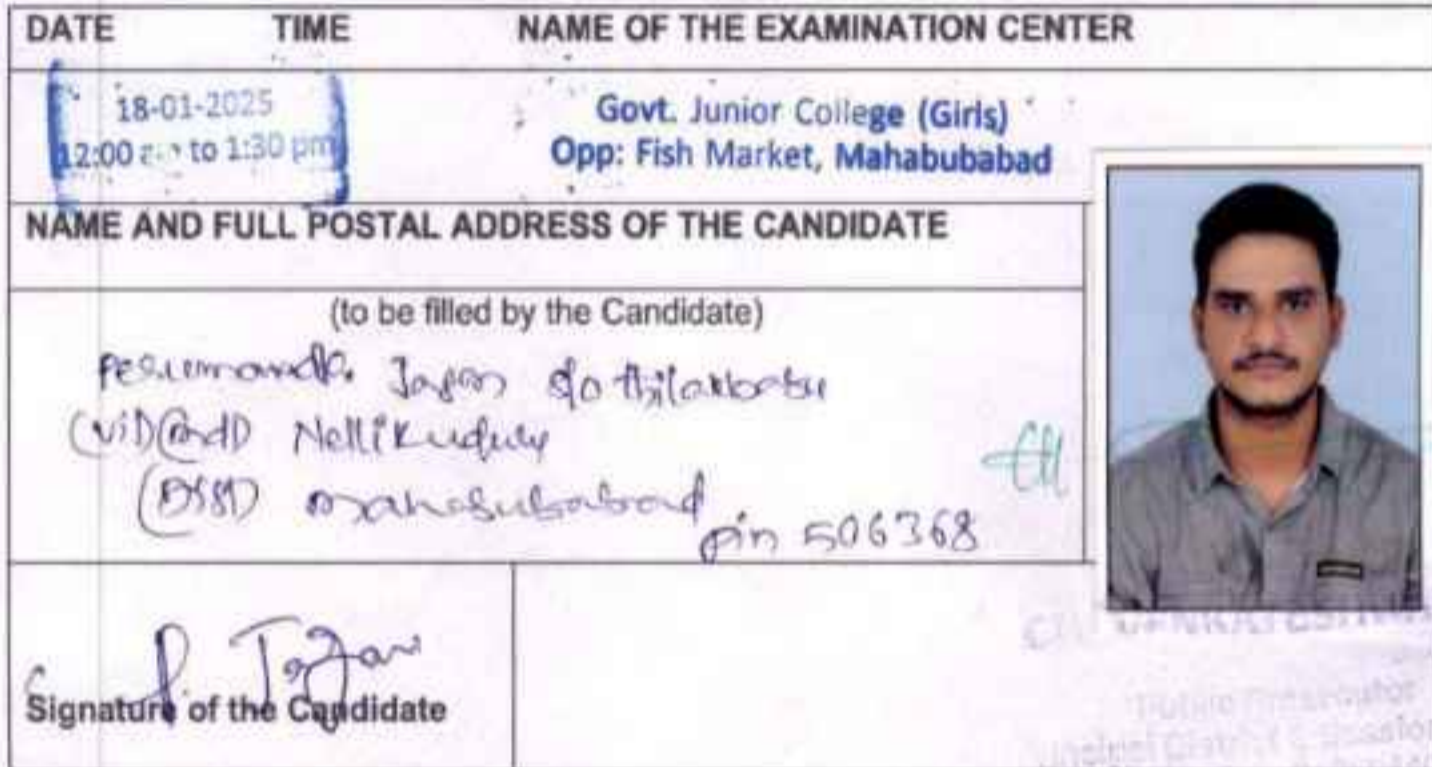 DATE TIME NAME OF THE EXAMINATION CENTER
18-01-2025
12:00 to 1:30 pm
Govt. Junior College (Girls)
Opp: Fish Market, Mahabubabad
NAME AND FULL POSTAL ADDRESS OF THE CANDIDATE
(to be filled by the Candidate)
Perumandla Jagan s/o thilakbabu
Nellikudury
mahabubabad
pin 506368
P. Jagan
Signature of the Candidate
Public Prosecutor